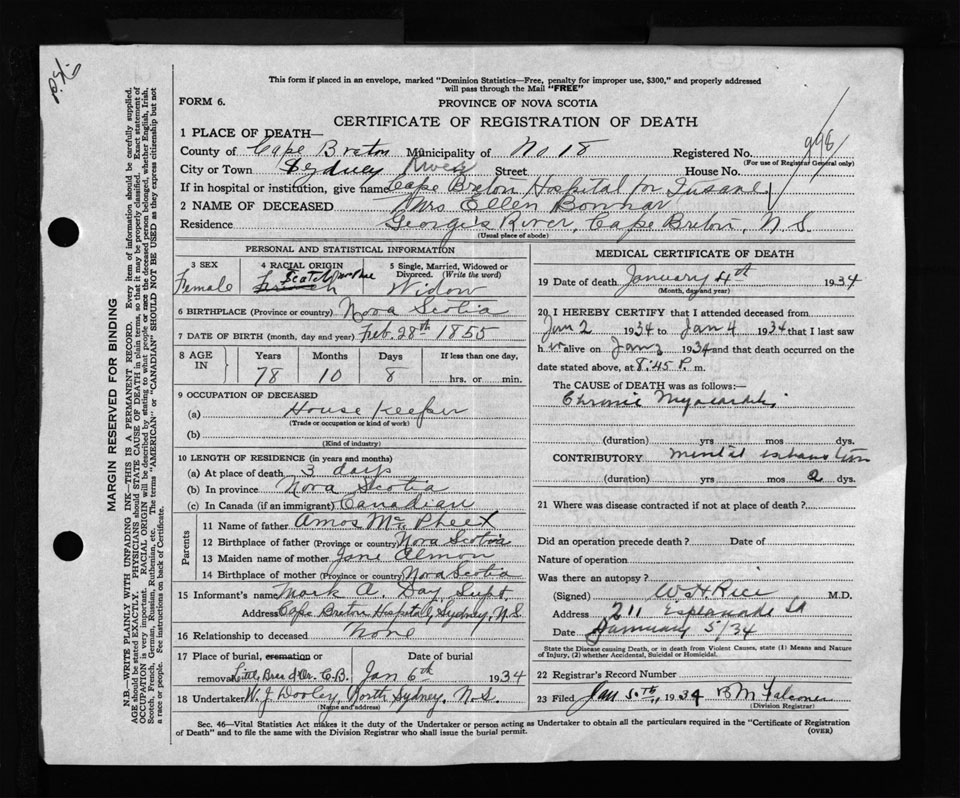 This form if placed in an envelope, marked "Dominion Statistics—Free, penalty for improper use, $300," and properly addressed
will pass through the Mail "FREE"
FORM 6.
PROVINCE OF NOVA SCOTIA
CERTIFICATE OF REGISTRATION OF DEATH
1 PLACE OF DEATH—
County of Cape Breton Municipality of No 18 Registered No. 998
(For use of Registrar General only)
City or Town Sydney River Street House No.
If in hospital or institution, give name Cape Breton Hospital for Insane
2 NAME OF DECEASED Mrs Ellen Bonnar
Residence Georges River, Cape Breton, N.S.
(Usual place of abode)
PERSONAL AND STATISTICAL INFORMATION
3 SEX 4 RACIAL ORIGIN 5 Single, Married, Widowed or Divorced. (Write the word)
Female Scotch Widow
6 BIRTHPLACE (Province or country) Nova Scotia
7 DATE OF BIRTH (month, day and year) Feb. 28th 1855
8 AGE IN Years Months Days If less than one day,
78 10 8 hrs. or min.
9 OCCUPATION OF DECEASED
(a) House Keeper
(Trade or occupation or kind of work)
(b)
(Kind of industry)
10 LENGTH OF RESIDENCE (in years and months)
(a) At place of death 3 days
(b) In province Nova Scotia
(c) In Canada (if an immigrant) Canadian
Parents
11 Name of father Amos McPheex
12 Birthplace of father (Province or country) Nova Scotia
13 Maiden name of mother Jane Almon
14 Birthplace of mother (Province or country) Nova Scotia
15 Informant's name Mark A. Day, Supt.
Address Cape Breton Hospital, Sydney, N.S.
16 Relationship to deceased None
17 Place of burial, cremation or removal Little Bras d'Or. C.B. Date of burial Jan 6th 1934
18 Undertaker W. J. Dooley, North Sydney, N.S.
(Name and address)
MEDICAL CERTIFICATE OF DEATH
19 Date of death January 4th 1934
(Month, day and year)
20 I HEREBY CERTIFY that I attended deceased from
Jan 2 1934 to Jan 4 1934 that I last saw
her alive on Jan 3 1934 and that death occurred on the
date stated above, at 8:45 P. m.
The CAUSE OF DEATH was as follows:—
Chronic Myocarditis
(duration) yrs mos dys.
CONTRIBUTORY mental exhaustion
(duration) yrs mos 2 dys.
21 Where was disease contracted if not at place of death?
Did an operation precede death? Date of
Nature of operation
Was there an autopsy?
(Signed) W H Rice M.D.
Address 211 Esplanade St
Date January 5/34
State the Disease causing Death, or in death from Violent Causes, state (1) Means and
Nature of Injury, (2) whether Accidental, Suicidal or Homicidal.
22 Registrar's Record Number
23 Filed Jan 30th, 1934 B M Falconer
(Division Registrar)
Sec. 46—Vital Statistics Act makes it the duty of the Undertaker or person acting as Undertaker to obtain all the particulars required in the "Certificate of Registration
of Death" and to file the same with the Division Registrar who shall issue the burial permit.
(OVER)
MARGIN RESERVED FOR BINDING
N.B.—WRITE PLAINLY WITH UNFADING INK—THIS IS A PERMANENT RECORD. Every item of information should be carefully supplied.
AGE should be stated EXACTLY. PHYSICIANS should STATE CAUSE OF DEATH in plain terms, so that it may be properly classified. Exact statement of
OCCUPATION is very important. RACIAL ORIGIN will be described by stating to what people or race the deceased person belonged, whether English, Irish,
Scotch, French, German, Russian, Ruthenian, etc. The terms "AMERICAN" or "CANADIAN" SHOULD NOT BE USED as they express citizenship but not
a race or people. See instructions on back of Certificate.